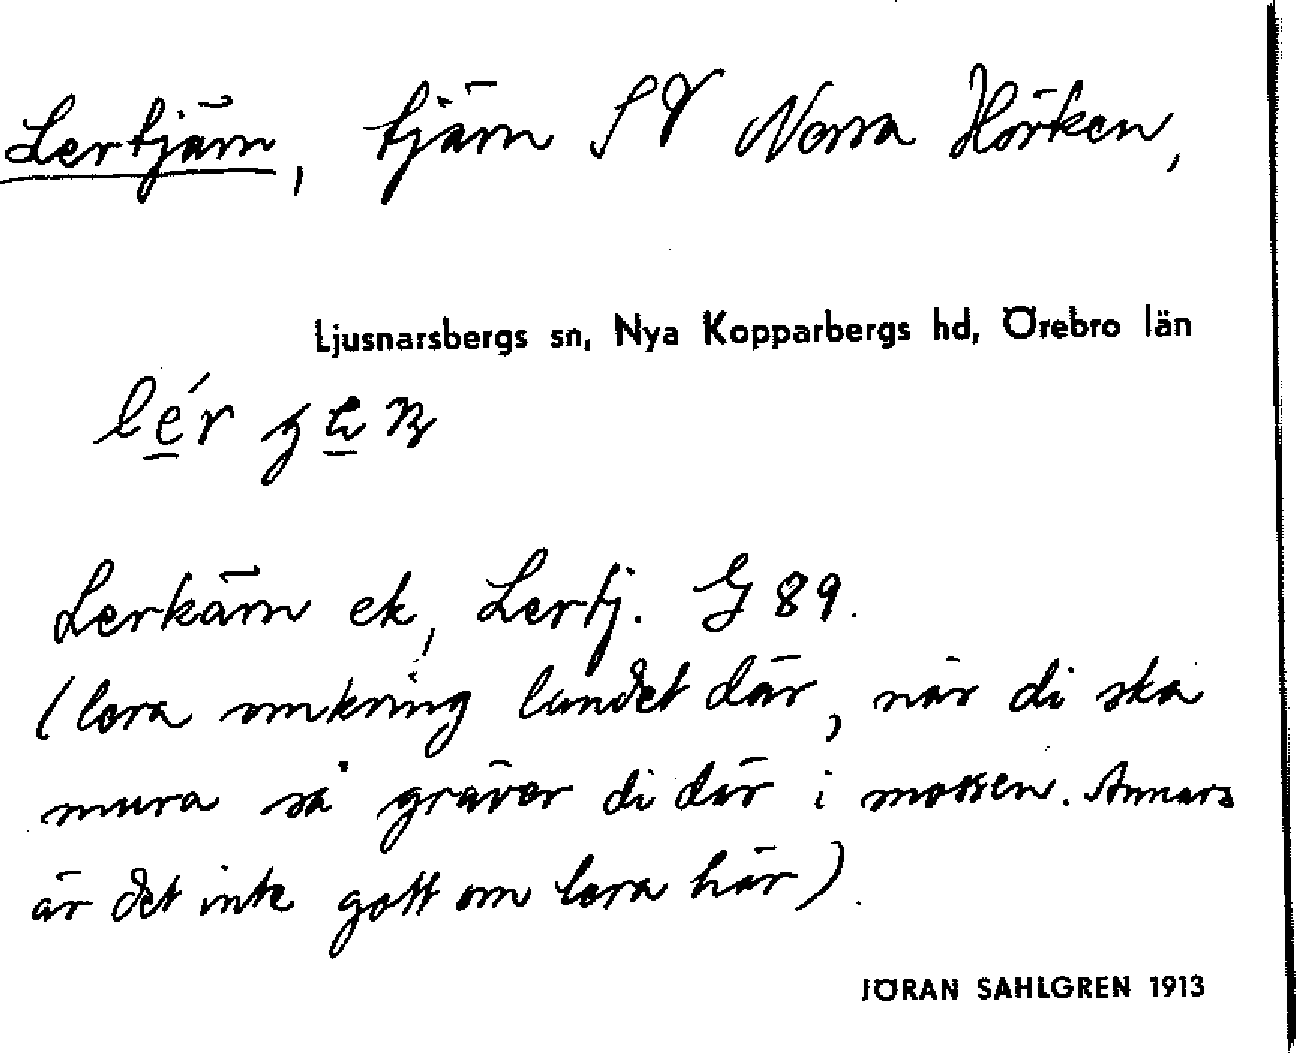 Lertjärn, tjärn SV Norra Hörken,
Ljusnarsbergs sn, Nya Kopparbergs hd, Örebro län
Lerkärn ek, Lertj. G 89.
(lera omkring landet där, när di ska
mura så gräver di där i mossen. Annars
är det inte gott om lera här).
JÖRAN SAHLGREN 1913